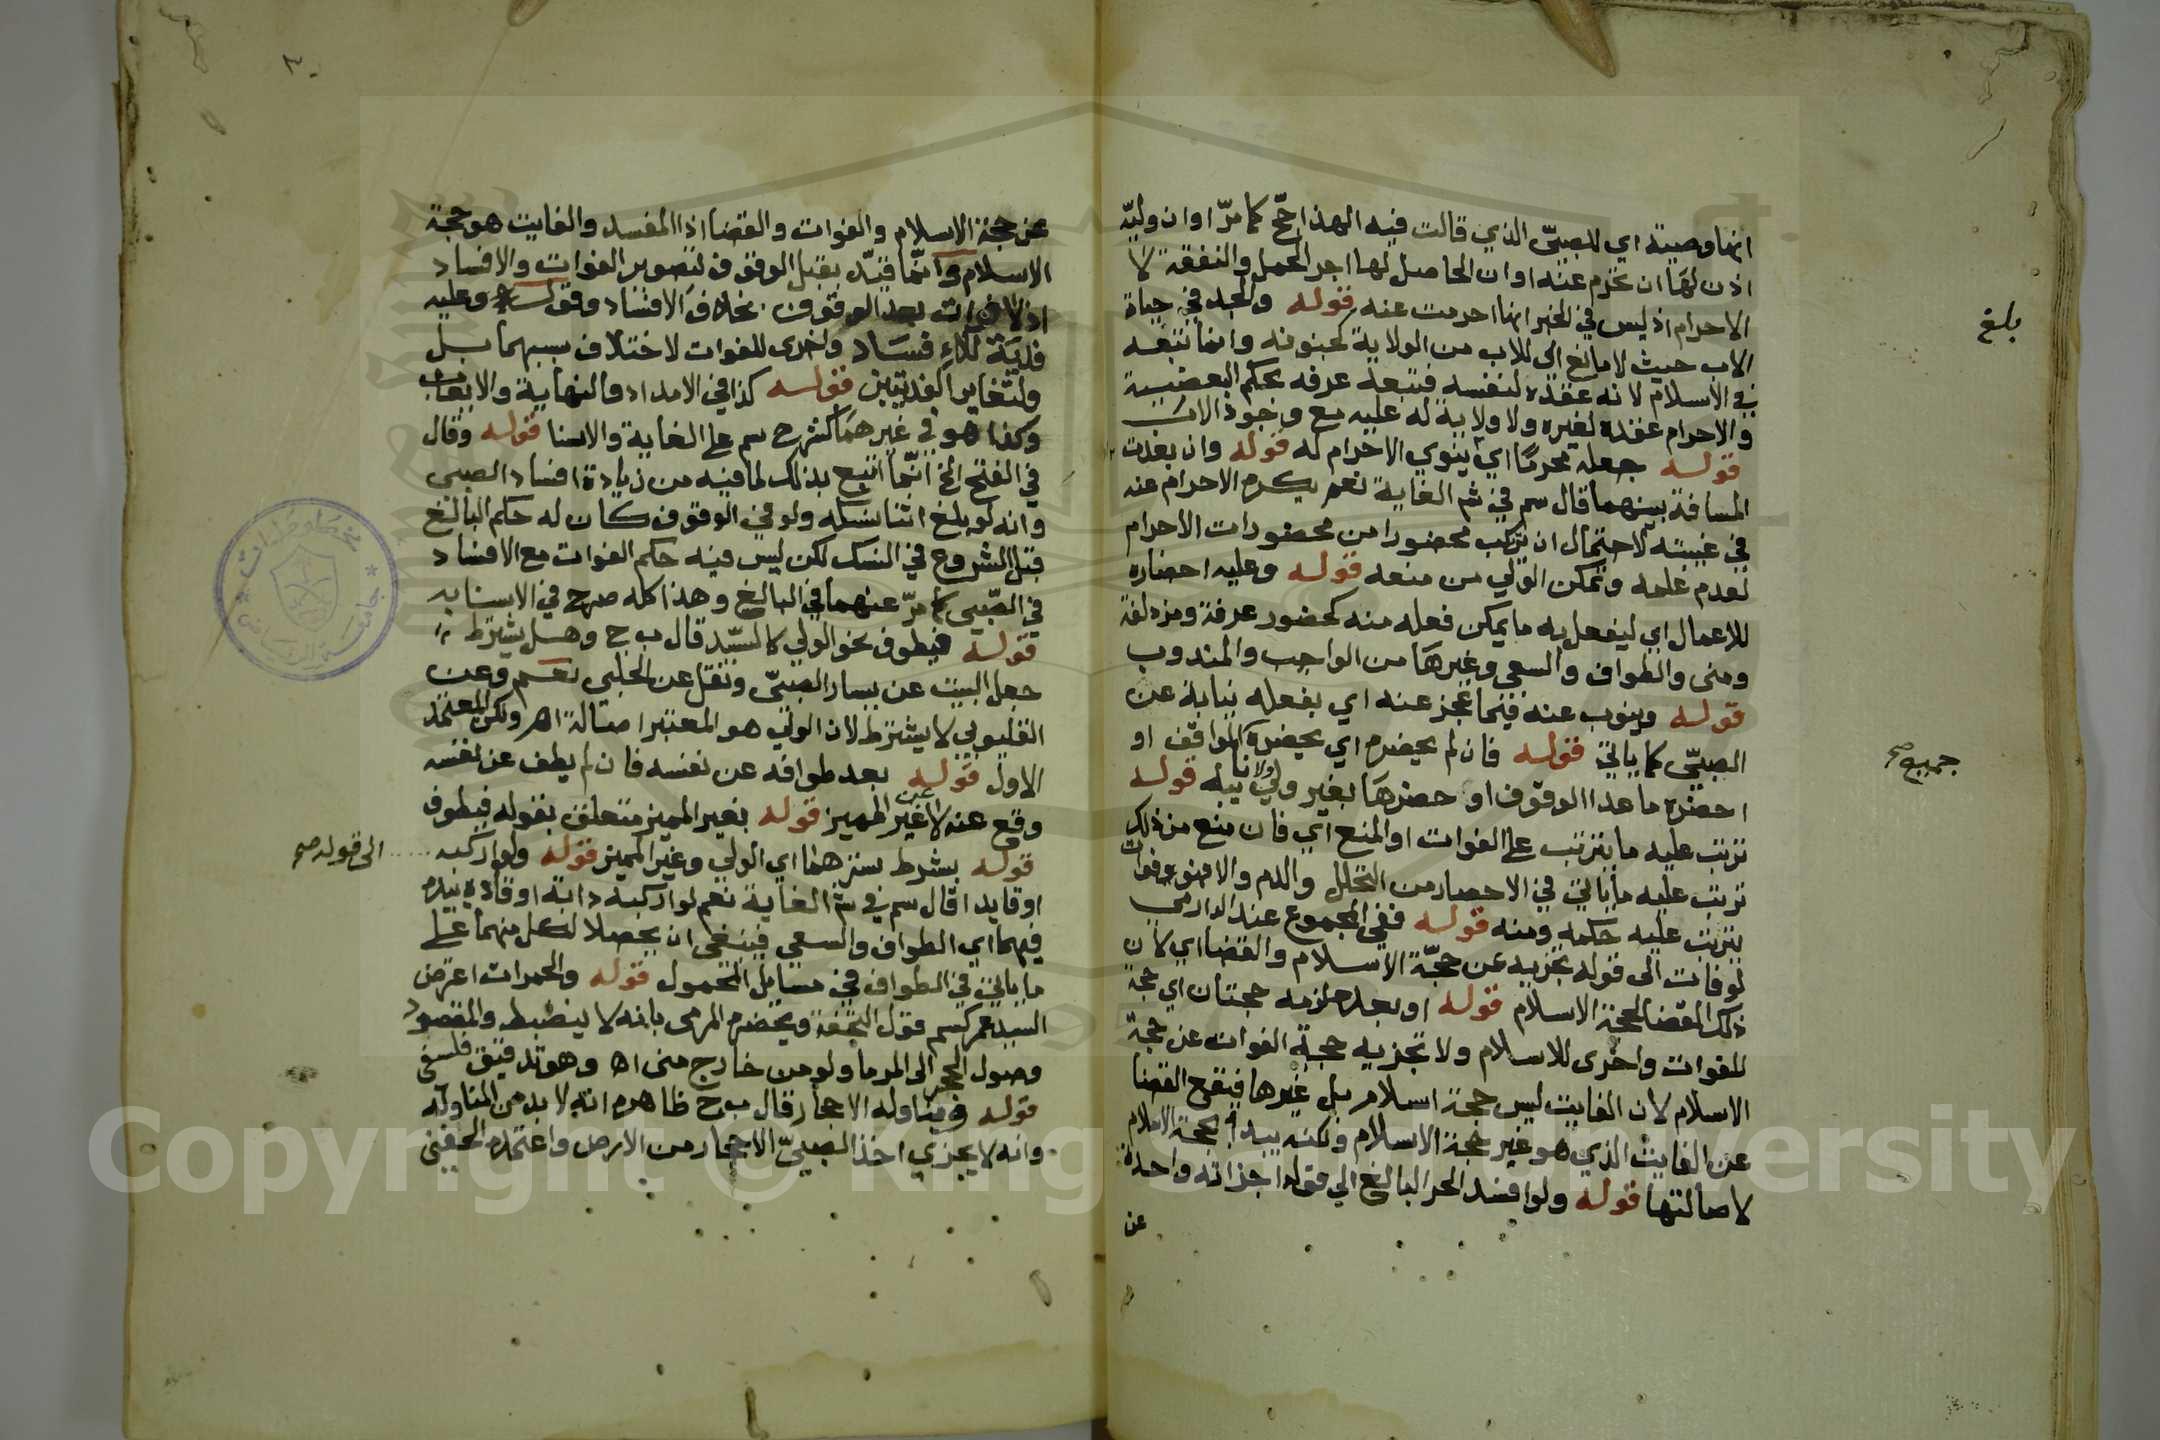 انها وصية اي للصبيّ الذي قالت فيه الهذا حجّ كما مرّ او ان وليّه
اذن لها ان تحرم عنه او ان الحاصل لها اجر الحمل والنفقة لا
الاحرام اذ ليس في الخبر انها احرمت عنه قوله والجد في حياة
الاب حيث لا مانع الى للاب من الولاية كجنونه وانما تتبعه
في الاسلام لانه عقده لنفسه فتبعه عرفه بحكم البعضية
والاحرام عقده لغيره ولا ولاية له عليه مع وجود الاب
قوله جعله محرمًا اي ينوي الاحرام له قوله وان بعدت
المسافة بينهما قال سم في شم الغاية نعم يكره الاحرام عنه
في غيبته لاحتمال ان يرتكب محضورا من محضورات الاحرام
لعدم علمه وتمكن الولي من منعه قوله وعليه احضاره
للاعمال اي ليفعل به ما يمكن فعله منه كحضور عرفة ومزدلفة
ومنى والطواف والسعي وغيرها من الواجب والمندوب
قوله وينوب عنه فيما عجز عنه اي يفعله نيابة عن
الصبيّ كما ياتي قوله فان لم يحضره اي يحضره المواقف او
احضره ما عدا الوقوف او حضرها بغير ولي ولا نايبه قوله
ترتب عليه ما يترتب على الفوات او المنع اي فان منع من ذلك
ترتب عليه ما ياتي في الاحصار من التحلل والدم والا فهو فوات
يترتب عليه حكمه ومنه قوله ففي المجموع عند الدارمي
لو فات الى قوله يجزيه عن حجّة الاسلام والقضا اي لان
ذلك القضا لحجة الاسلام قوله او بعده لزمه حجتان اي حجة
للفوات واخرى للاسلام ولا تجزيه حجة الفوات عن حجة
الاسلام لان الفايت ليس حجة اسلام بل غيرها فيقع القضا
عن الفايت الذي هو غير حجة الاسلام ولكنه يبدا بحجة الاسلام
لاصالتها قوله ولو افسد الحر البالغ الي قوله اجزاته واحدة
عن
بلغ
جميع صح
عن حجة الاسلام والفوات والقضا اذ المفسد والفايت هو حجة
الاسلام وانما قيّد بقبل الوقوف في تصوير الفوات والافساد
اذ لا فوات بعد الوقوف بخلاف الافساد وقوله وعليه
فدية للافساد واخرى للفوات لاختلاف سببهما بل
ولتغاير الفديتين قوله كذا في الامداد والنهاية والايعاب
وكذا هو في غيرهما كشرح سم على الغاية والاسنا قوله وقال
في الفتح الخ انما اتبع بذلك لما فيه من زيادة افساد الصبي
وانه لو بلغ اثنا نسكه ولو في الوقوف كان له حكم البالغ
قبل الشروع في النسك لكن ليس فيه حكم الفوات مع الافساد
في الصّبي كما مرّ عنهما في البالغ وهذا كله صرح في الاسنا به
قوله فيطوف نحو الولي كالسيّد قال ب ج وهل يشترط
جعل البيت عن يسار الصبيّ ونقل عن الحلبي نعم وعن
القليوبي لا يشترط لان الولي هو المعتبر اصالة اهـ ولكن المعتمد
الاول قوله بعد طوافه عن نفسه فان لم يطف عن نفسه
وقع عنه لا عن غير المميز قوله بغير المميز متعلق بقوله فيطوف
قوله بشرط سترهما اي الولي وغير المميز قوله ولو اركبه
الى قوله صح
او قايدا قال سم في شم الغاية نعم لو اركبه دابة او قاده بيده
فيهما اي الطواف والسعي فينبغي ان يحصلا لكل منهما على
ما ياتي في الطواف في مسايل المحمول قوله والجمرات اعترض
السيد عمر كسم قول التحفة ويحضره المرمى بانه لا ينضبط والمقصود
وصول الحجر الى المرما ولو من خارج منى اهـ وهو تدقيق فلسفي
قوله فيناوله الاحجار قال ب ج ظاهره انه لا بد من المناولة
وانه لا يجزي اخذ الصبيّ الاحجار من الارض واعتمده الحفني
جامعة الرياض
Copyright © King Saud University